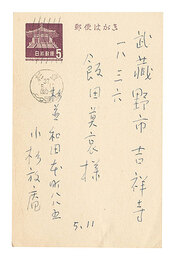 郵便はがき
日本郵便
5
武蔵野市吉祥寺
一八三六
飯田莫哀様
杉並 和田本町八八五
小杉放庵
5.11